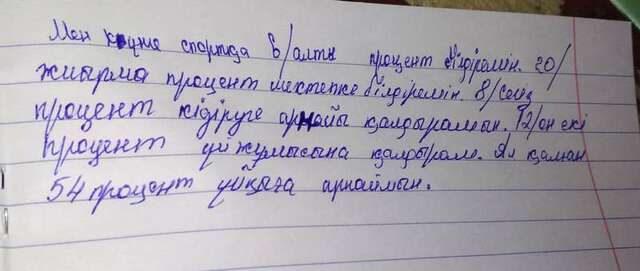 Мен күнне спортқа 6/алты процент бөлдіремін. 20/
жиырма процент мектепке бөлдіремін. 8/сегіз
процент кідіруге арнайы қалдырамын. 12/он екі
процент үй жұмысына қалдырам. Ал қалған
54 процент ұйқыға арнаймын.